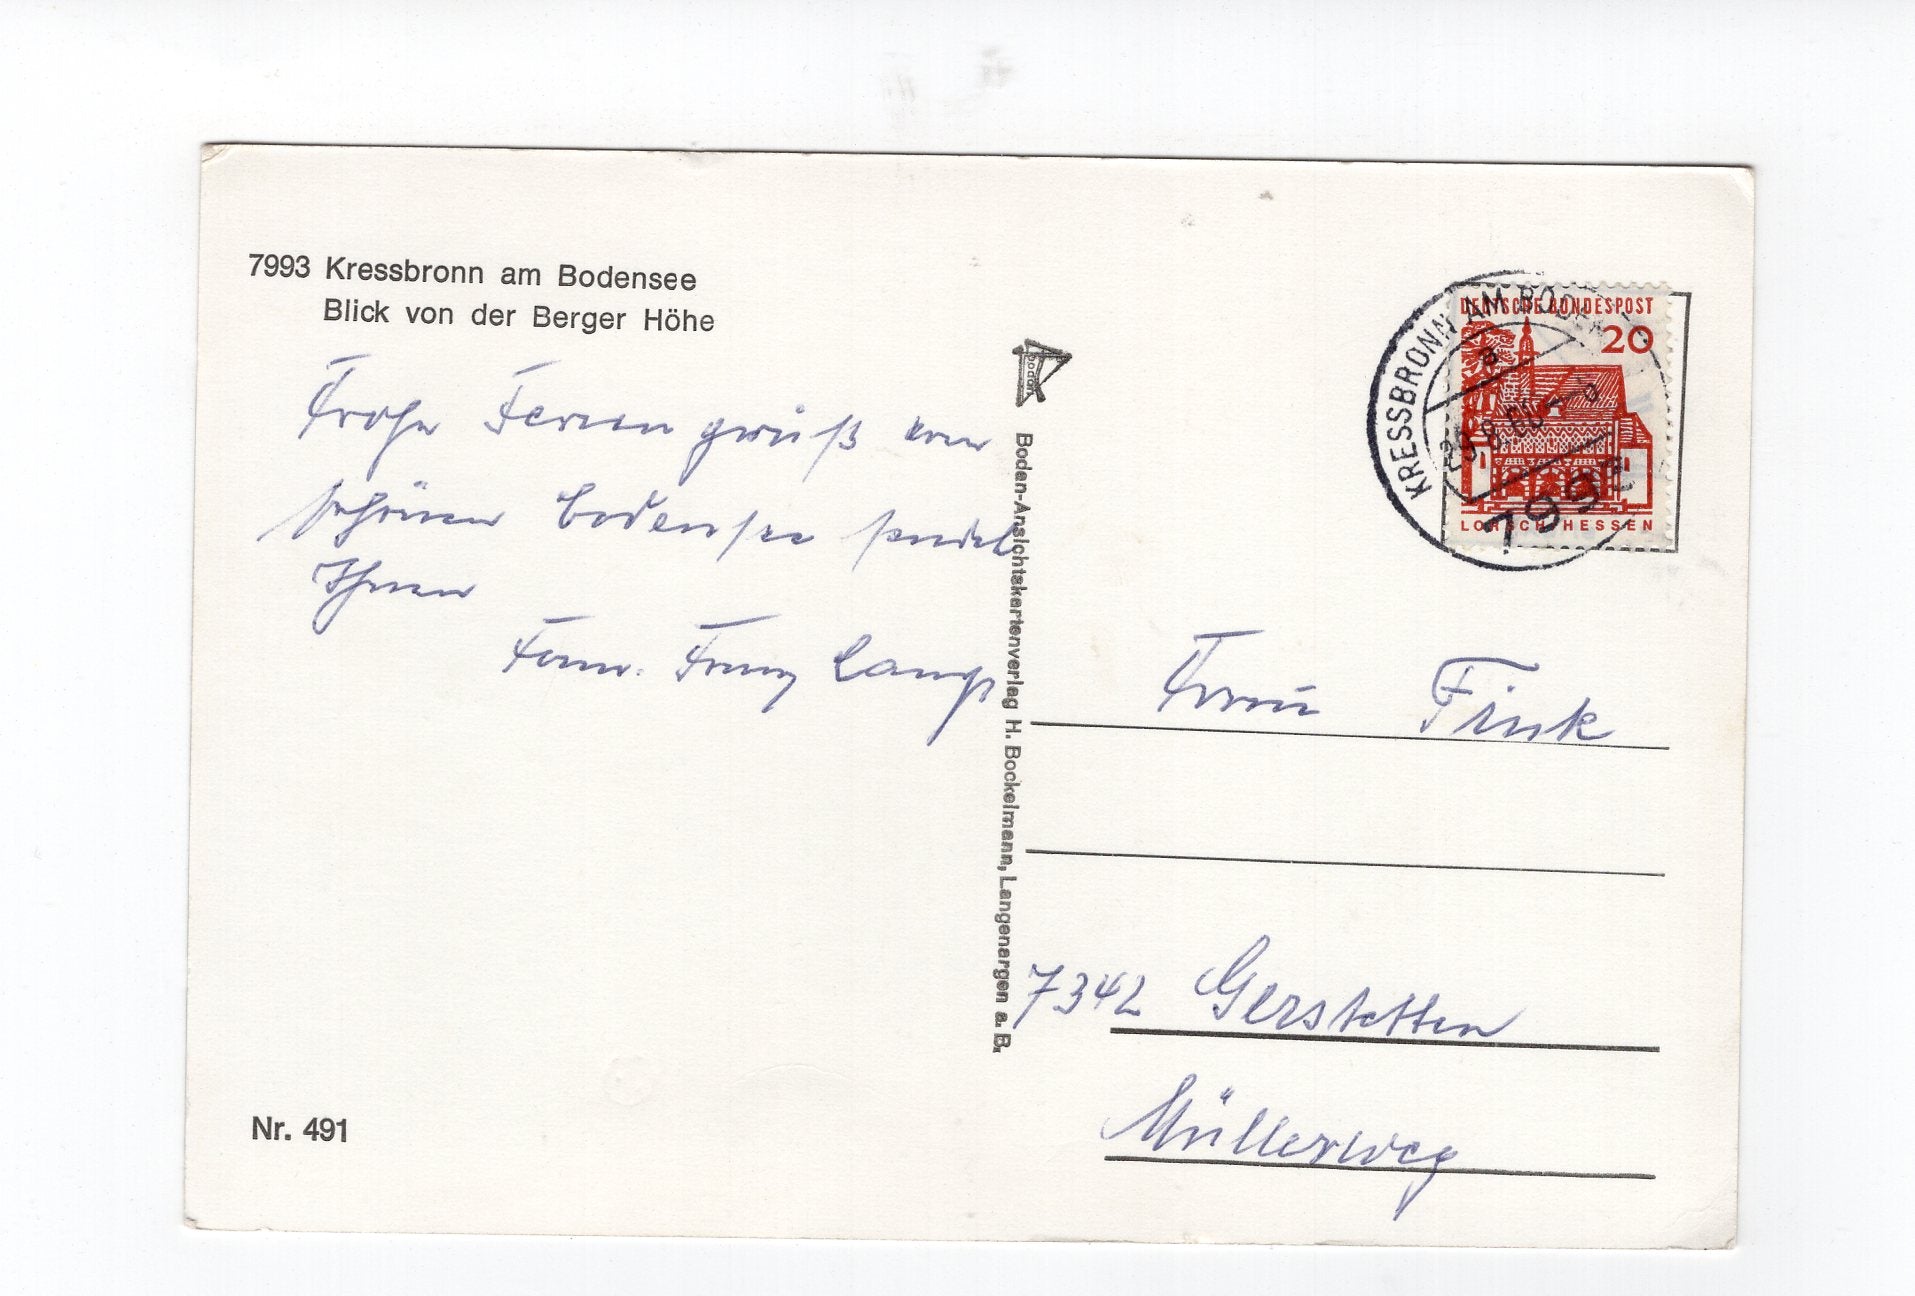 7993 Kressbronn am Bodensee
Blick von der Berger Höhe
Frohe Feriengrüß vom
schönen Bodensee sendet
Ihnen
Fam. Franz Lang
Nr. 491
bodan
Bodan-Ansichtskartenverlag H. Bockelmann, Langenargen a. B.
DEUTSCHE BUNDESPOST
20
LORSCH HESSEN
KRESSBRONN AM BODENSEE
a
29.8.
7993
Frau Fink
7342 Gerstetten
Müllerweg